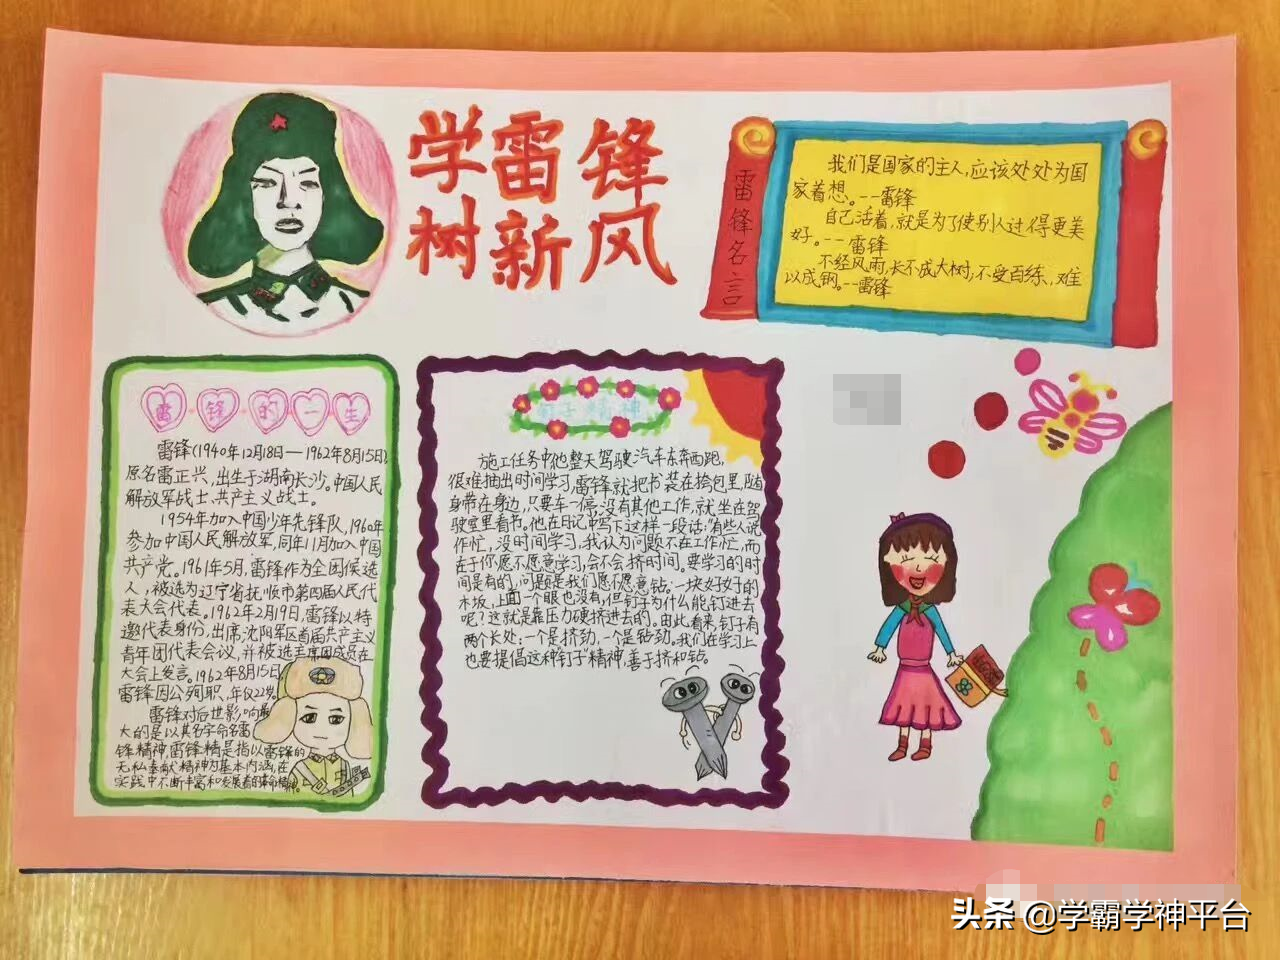 学雷锋
树新风
雷锋名言
我们是国家的主人,应该处处为国
家着想。--雷锋
自己活着,就是为了使别人过得更美
好。--雷锋
不经风雨,长不成大树,不受百练,难
以成钢。--雷锋
雷锋的一生
雷锋(1940年12月18日—1962年8月15日),
原名雷正兴,出生于湖南长沙。中国人民
解放军战士、共产主义战士。
1954年加入中国少年先锋队,1960年
参加中国人民解放军,同年11月加入中国
共产党。1961年5月,雷锋作为全团候选
人,被选为辽宁省抚顺市第四届人民代
表大会代表。1962年2月19日,雷锋以特
邀代表身份,出席沈阳军区首届共产主义
青年团代表会议,并被选主席团成员在
大会上发言。1962年8月15日
雷锋因公殉职,年仅22岁。
雷锋对后世影响最
大的是以其名字命名雷
锋精神,雷锋精是指以雷锋的
无私奉献精神为基本内涵,在
实践中不断丰富和发展着的革命精神。
钉子精神
施工任务中他整天驾驶汽车东奔西跑,
很难抽出时间学习,雷锋就把书装在挎包里,随
身带在身边,只要车一停,没有其他工作,就坐在驾
驶室里看书。他在日记中写下这样一段话:“有些人说
作忙,没时间学习,我认为问题不在工作忙,而
在于你愿不愿意学习,会不会挤时间。要学习的时
间是有的,问题是我们愿不愿意钻。一块好好的
木板,上面一个眼也没有,但钉子为什么能钉进去
呢?这就是靠压力硬挤进去的。由此看来,钉子有
两个长处:一个是挤劲,一个是钻劲。我们在学习上
也要提倡这种钉子”精神,善于挤和钻。
头条 @学霸学神平台